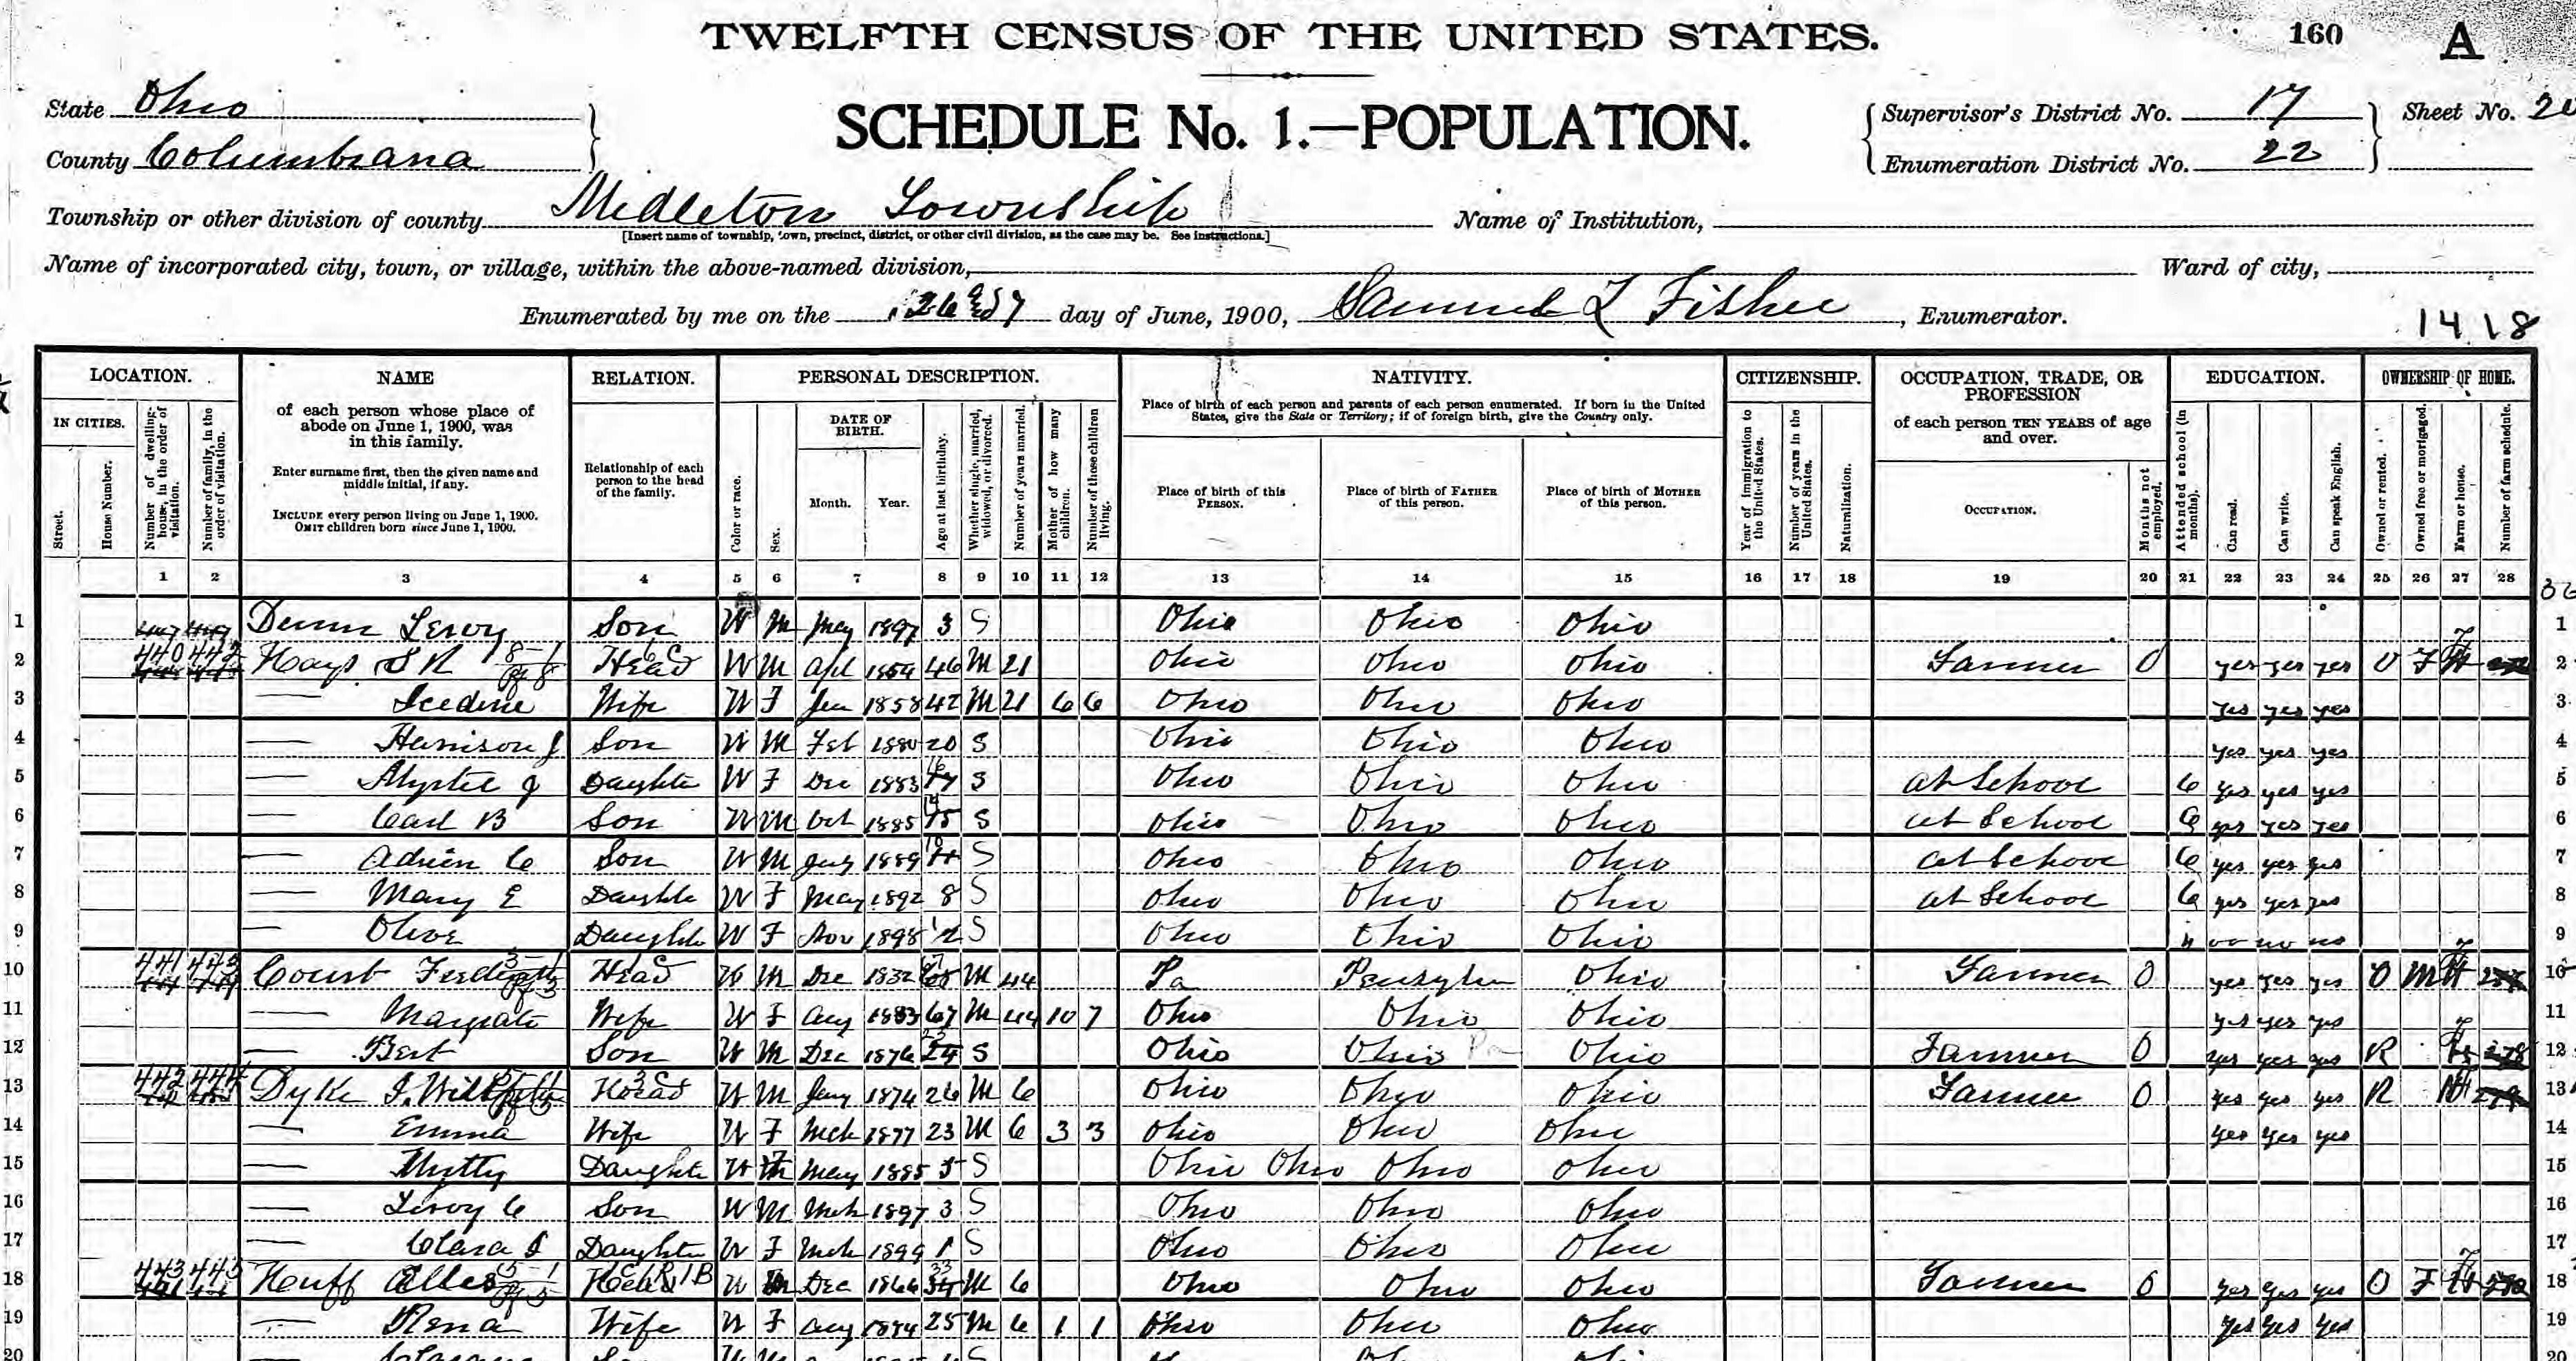 TWELFTH CENSUS OF THE UNITED STATES.
160 A
State Ohio
County Columbiana
SCHEDULE No. 1.—POPULATION.
Supervisor's District No. 17 Sheet No.
Enumeration District No. 22
Township or other division of county Midleton Township Name of Institution,
[Insert name of township, town, precinct, district, or other civil division, as the case may be. See instructions.]
Name of incorporated city, town, or village, within the above-named division, Ward of city,
Enumerated by me on the 26 day of June, 1900, Samuel L Fisher, Enumerator.
1418
LOCATION. NAME RELATION. PERSONAL DESCRIPTION. NATIVITY. CITIZENSHIP. OCCUPATION, TRADE, OR PROFESSION EDUCATION. OWNERSHIP OF HOME.
IN CITIES.
Street.
House Number.
Number of dwelling-house, in the order of visitation.
Number of family, in the order of visitation.
of each person whose place of abode on June 1, 1900, was in this family.
Enter surname first, then the given name and middle initial, if any.
INCLUDE every person living on June 1, 1900.
OMIT children born since June 1, 1900.
Relationship of each person to the head of the family.
Color or race.
Sex.
DATE OF BIRTH.
Month. Year.
Age at last birthday.
Whether single, married, widowed, or divorced.
Number of years married.
Mother of how many children.
Number of these children living.
Place of birth of each person and parents of each person enumerated. If born in the United States, give the State or Territory; if of foreign birth, give the Country only.
Place of birth of this PERSON.
Place of birth of FATHER of this person.
Place of birth of MOTHER of this person.
Year of immigration to the United States.
Number of years in the United States.
Naturalization.
of each person TEN YEARS of age and over.
OCCUPATION.
Months not employed.
Attended school (in months).
Can read.
Can write.
Can speak English.
Owned or rented.
Owned free or mortgaged.
Farm or house.
Number of farm schedule.
1 2 3 4 5 6 7 8 9 10 11 12 13 14 15 16 17 18 19 20 21 22 23 24 25 26 27 28
1 Leroy Son W M May 1897 3 S Ohio Ohio Ohio 1
2 440 442 Hays S R Head W M Apl 46 M 21 Ohio Ohio Ohio Farmer 0 yes yes yes O F 2
3 Wife W F Jan 1858 42 M 21 6 6 Ohio Ohio Ohio yes yes yes 3
4 Harrison J Son W M Feb 1880 20 S Ohio Ohio Ohio yes yes yes 4
5 Daughte W F Dec 1883 16 S Ohio Ohio Ohio at School 6 yes yes yes 5
6 Carl B Son W M Oct 1885 14 S Ohio Ohio Ohio at School 6 yes yes yes 6
7 Adrien C Son W M 1889 10 S Ohio Ohio Ohio at School 6 yes yes yes 7
8 Mary E Daughte W F May 1892 8 S Ohio Ohio Ohio at School 6 yes yes yes 8
9 Olive Daughte W F Nov 1898 S Ohio Ohio Ohio no no 9
10 441 443 Court Head W M Dec 1832 67 M 44 Pa Ohio Farmer 0 yes yes yes O M 10
11 Wife W F Aug 67 M 44 10 7 Ohio Ohio Ohio yes yes yes 11
12 Bert Son W M Dec 1876 23 S Ohio Ohio Ohio Farmer 0 yes yes yes R 12
13 442 444 Dyke Head W M Jany 1874 26 M 6 Ohio Ohio Ohio Farmer 0 yes yes yes R 13
14 Emma Wife W F Mch 1877 23 M 6 3 3 Ohio Ohio Ohio yes yes yes 14
15 Daughte W F May 5 S Ohio Ohio Ohio Ohio 15
16 Leroy C Son W M Mch 1897 3 S Ohio Ohio Ohio 16
17 Clara Daughter W F Mch 1899 1 S Ohio Ohio Ohio 17
18 443 445 Huff Head W M Dec 1866 33 M 6 Ohio Ohio Ohio Farmer 0 yes yes yes O F 18
19 Rena Wife W F Aug 1874 25 M 6 1 1 Ohio Ohio Ohio yes yes yes 19
20 20